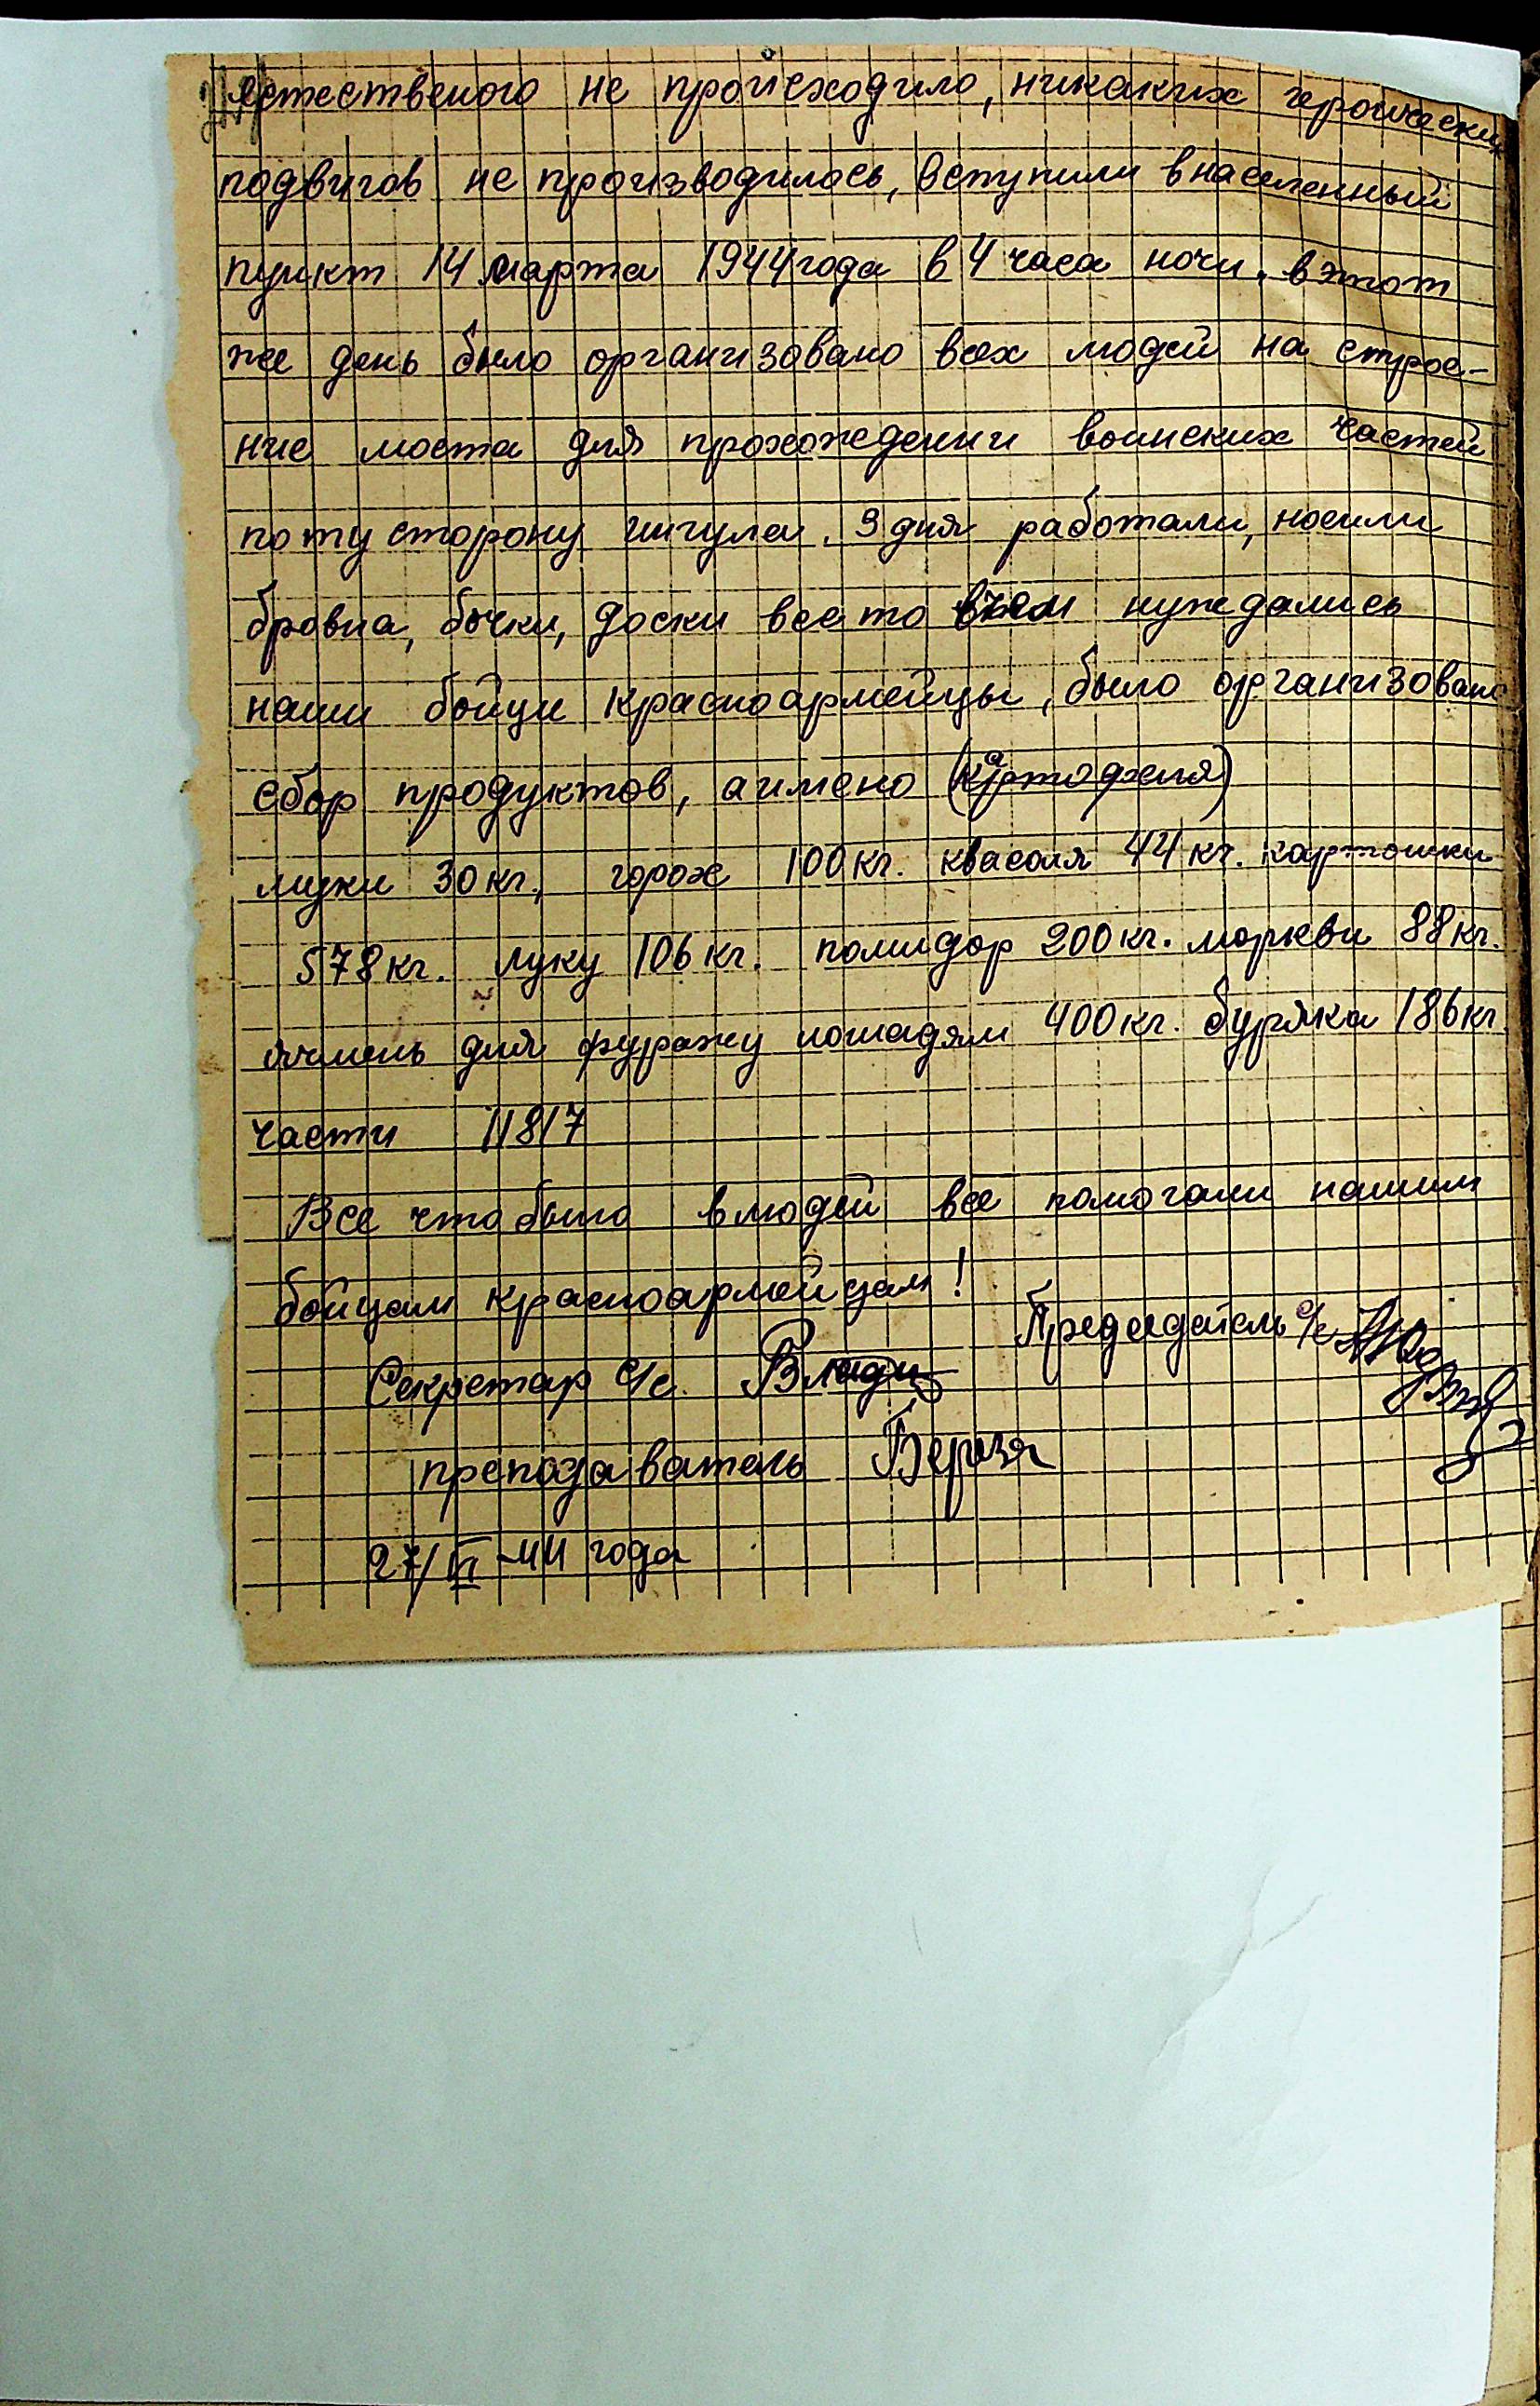 естественого не происходило, никаких героически
подвигов не производилось, вступили в населенный
пункт 14 марта 1944 года в 4 часа ночи. в этот
же день было организовано всех людей на строе-
ние моста для прохождении воинских частей
по ту сторону ингула. 3 дня работали, носили
бровна, бочки, доски все то в чем нуждались
наши бойци красноармейцы, было организовано
сбор продуктов, а имено (картофеля)
муки 30 кг, горох 100 кг. квасоля 44 кг. картошки
578 кг. луку 106 кг. помидор 200 кг. моркви 88 кг.
ячмень для фуражу лошадям 400 кг. буряка 186 кг
части 11817
Все что было в людей все помогали нашим
бойцам красноармейцам!
Председатель с/с
Секретар с/с.
преподаватель Березя
27/III-44 года